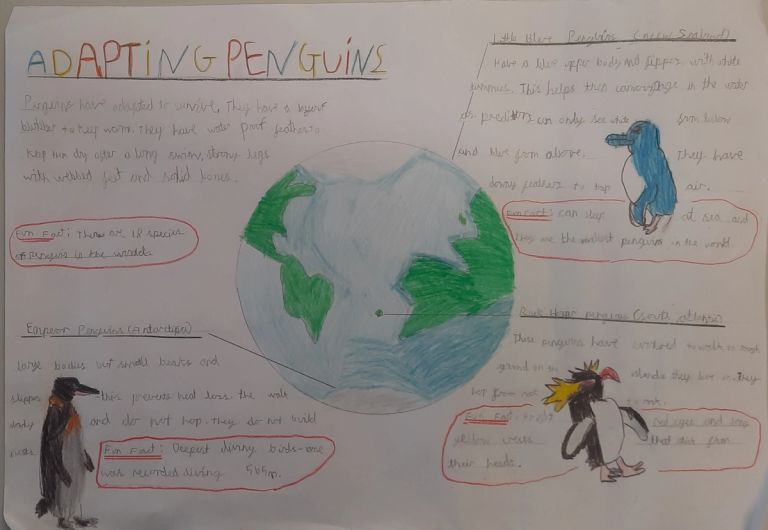 ADAPTING PENGUINS
Penguins have adapted to survive, They have a layer of
blubber to keep warm. They have water proof feathers to
keep them dry after a long swim, strong legs
with webbed feet and solid bones.
Fun Fact: There are 18 species
of Penguins in the world.
Little Blue Penguins (new Sealand)
Have a blue upper body and flippers, with white
tummies. This helps them camouflage in the water
as preditors can only see white from below
and blue from above. They have
downy feathers to trap air.
Fun Fact: can sleep at sea and
they are the smallest penguins in the world
Emperor Penguins (Antarctica)
large bodies but small beaks and
flippers this prevents heat loss. the walk
slowly and do not hop. They do not build
nests.
Fun Fact: Deepest diving birds - one
was recorded diving 565m.
Rock Hoper penguins (South atlantic)
These penguins have evolved to walk on rough
ground on the islands they live in. They
hop from rock to rock.
Fun Fact: red eyes and long
yellow that from
their heads.